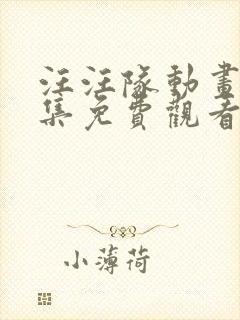 汪汪隊動畫
集免費觀看
小薄荷